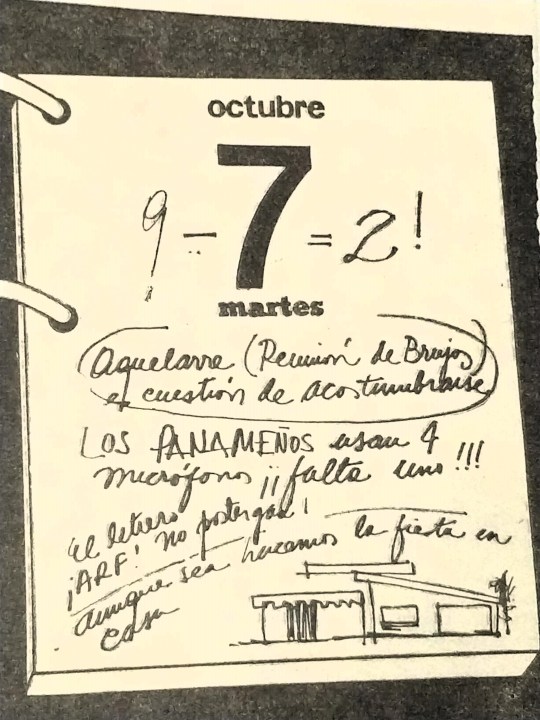 octubre
9 - 7 = 2!
martes
Aquelarre (Reunión de Brujos)
es cuestión de acostumbrarse
LOS PANAMEÑOS usan 4
micrófonos ¡¡falta uno!!!
El letrero
¡ARF! no postergar!
aunque sea hacemos la fiesta en
casa